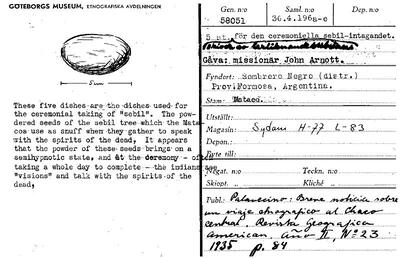 GÖTEBORGS MUSEUM, ETNOGRAFISKA AVDELNINGEN
5 cm
These five dishes are the dishes used for
the ceremonial taking of "sebil". The pow-
dered seeds of the sebil tree which the Mata-
coa use as snuff when they gather to speak
with the spirits of the dead, It appears
that the powder of these seeds brings on a
semihypnotic state, and at the deremony - often
taking a whole day to complete - the indians see
"visions" and talk with the spirits of the
dead,
Gen.n:o
58051
Saml.n:o
36.4.196a-e
Dep.n:o
5 st för den ceremoniella sebil-intagandet.
Gåva: missionar John Arnott.
Fyndort: Sombrero Negro (distr.)
Prov.Formosa, Argentina.
Stam: Mataco.
Utställt:
Magasin: Sydam H-77 L-83
Depon.:
Byte till:
Negat. n:o Teckn. n:o
Skiopt. Kliché
Publ: Palavecino: Breve noticia sobre
un viaje etnografico al Chaco
central. Revista Geografica
American. Año II, Nº 23
1935 p. 84